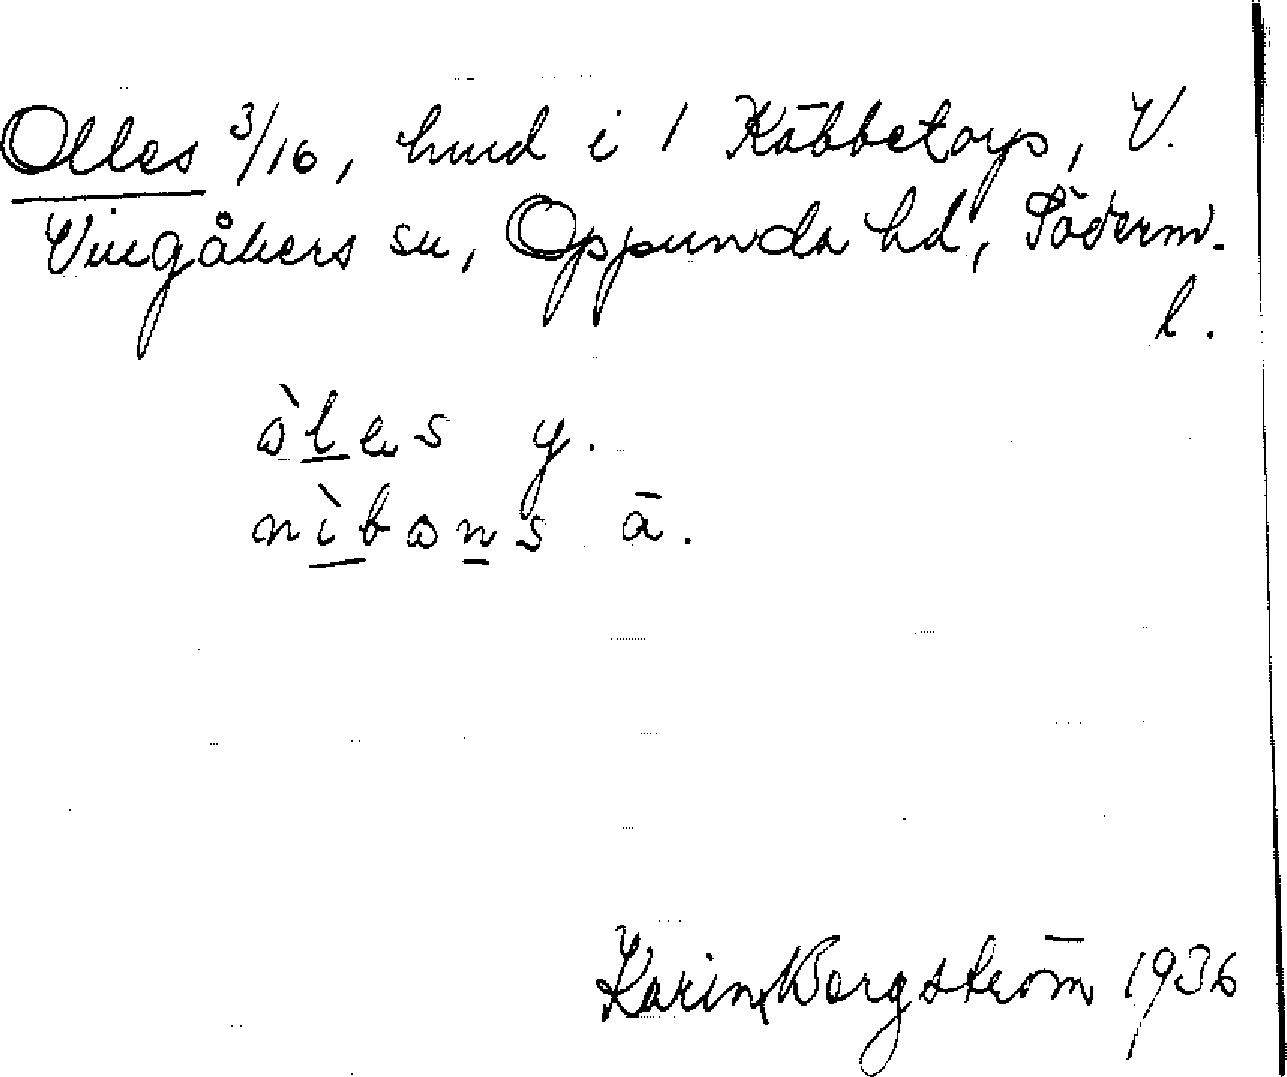 Olles 3/16, hmd i 1 Käbbetorp, V.
Vingåkers sn, Oppunda hd, Söderm.
l.
òles y.
nìbans ä.
Karin Bergström 1936